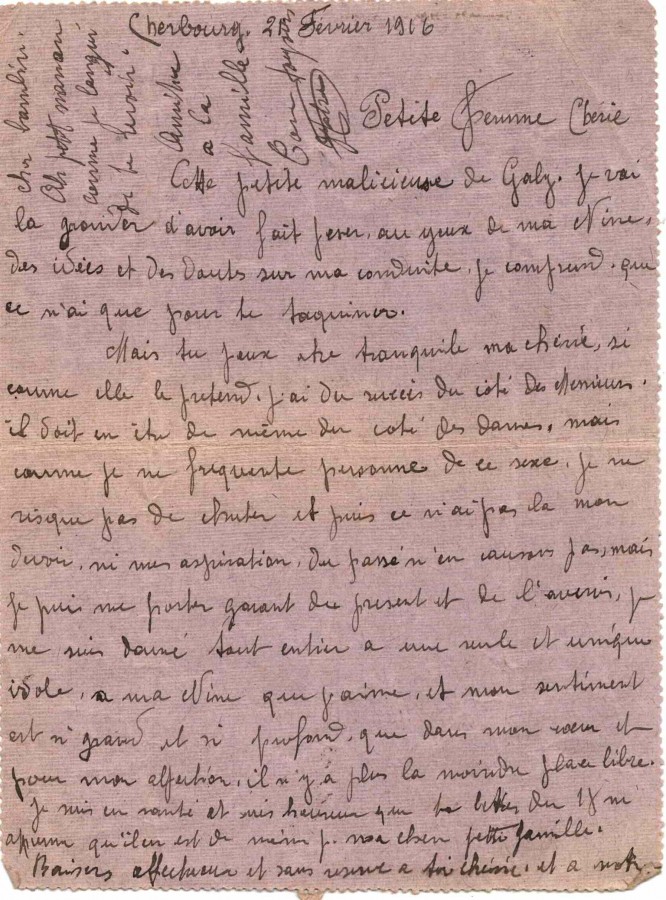 Cherbourg. 21 Février 1916
Petite Femme Chérie
Cette petite malicieuse de Gaby. je vai
la gronder d'avoir fait peser, au yeux de ma Nine,
des idées et des doutes sur ma conduite. je comprend. que
ce n'ai que pour te taquiner.
Mais tu peux etre tranquile ma chérie, si
comme elle le pretend. j'ai du succès du coté des Messieurs.
il doit en être de même du coté des dames, mais
comme je ne frequente personne de ce sexe. je ne
risque pas de chuter et puis ce n'ai pas la mon
devoir, ni mes aspiration, du passé n'en causons pas, mais
je puis me porter garant du present et de l'avenir, je
me suis donné tout entier a une seule et unique
idole, a ma Nine que j'aime, et mon sentiment
est si grand et si profond, que dans mon coeur et
pour mon affection, il n'y a plus la moindre place libre.
je suis en santé et suis heureux que ta lettre du 18 m'
apprenne qu'il en est de même p. ma chere petite famille.
Baisers affectueux et sans reserve a toi chérie. et a notre
cher bambin.
Ah petit maman
comme je langui
de te revoir.
Amitiés
a la
famille
Ton